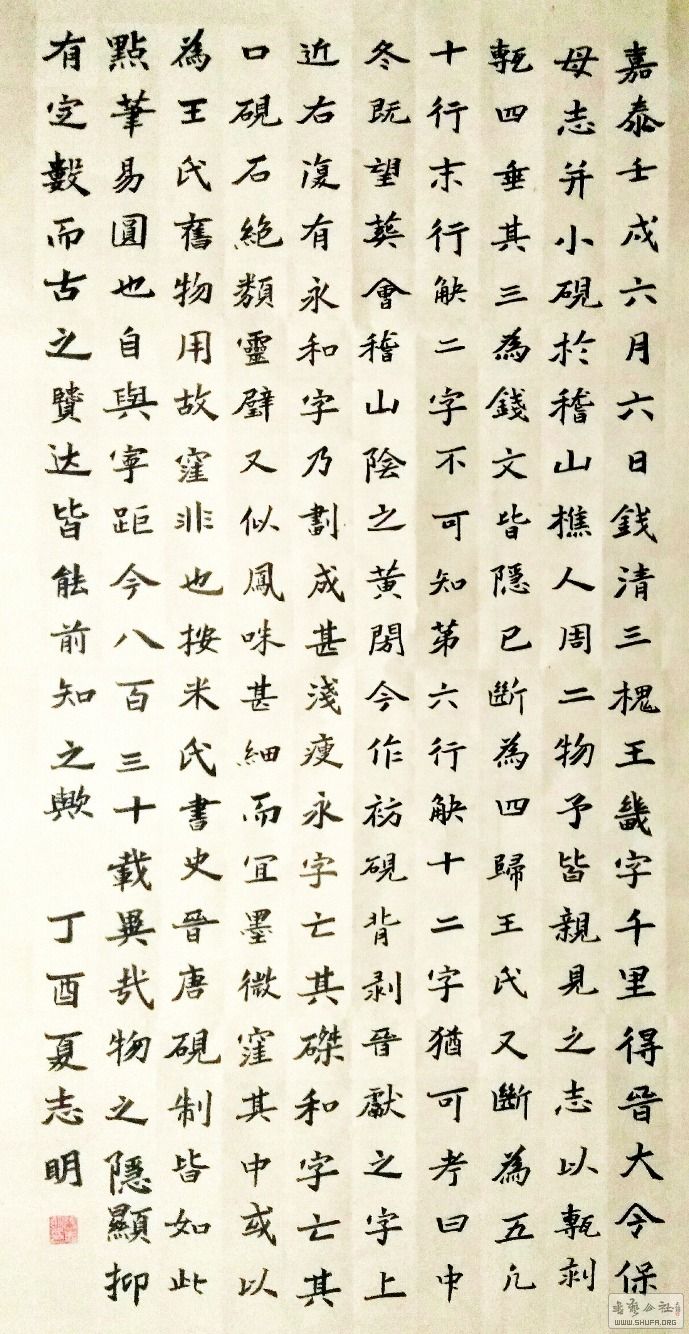 嘉泰壬戌六月六日錢清三槐王畿字千里得晉大令保
母志并小硯於稽山樵人周二物予皆親見之志以甎剥
甎四垂其三為錢文皆隱已斷為四歸王氏又斷為五凡
十行末行缺二字不可知第六行缺十二字猶可考曰中
冬既望葬會稽山陰之黃閍今作祊硯背剥晉獻之字上
近右復有永和字乃劃成甚淺瘦永字亡其磔和字亡其
口硯石絕類靈璧又似鳳咮甚細而宜墨微窪其中或以
為王氏舊物用故窪非也按米氏書史晉唐硯制皆如此
點筆易圓也自與寧距今八百三十載異哉物之隱顯抑
有定數而古之賢达皆能前知之歟 丁酉夏志明
WWW.SHUFA.ORG